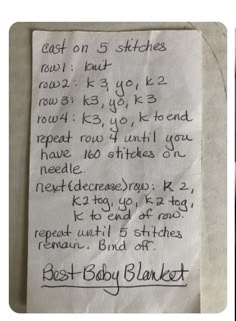 Cast on 5 stitches
row 1: knit
row 2: K 3, yo, K 2
row 3: K3, yo, K 3
row 4: K3, yo, K to end
repeat row 4 until you
have 160 stitches on
needle.
next (decrease) row: K 2,
K2 tog, yo, K2 tog,
K to end of row.
repeat until 5 stitches
remain. Bind off.
Best Baby Blanket